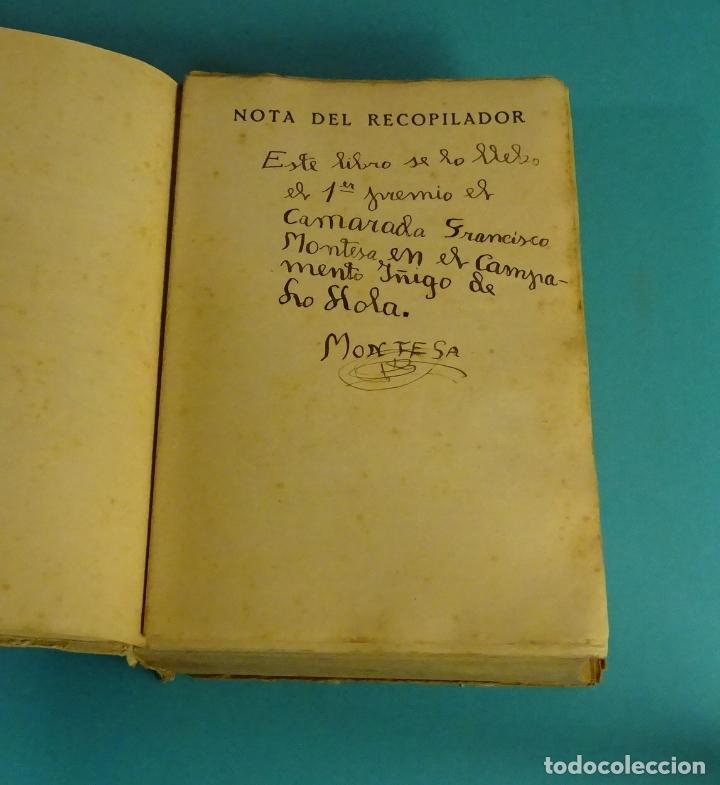 NOTA DEL RECOPILADOR
Este libro se lo llebo
el 1er premio el
Camarada Francisco
Montesa, en el Campa-
mento Iñigo de
Lo llola.
MONTESA
todocoleccion